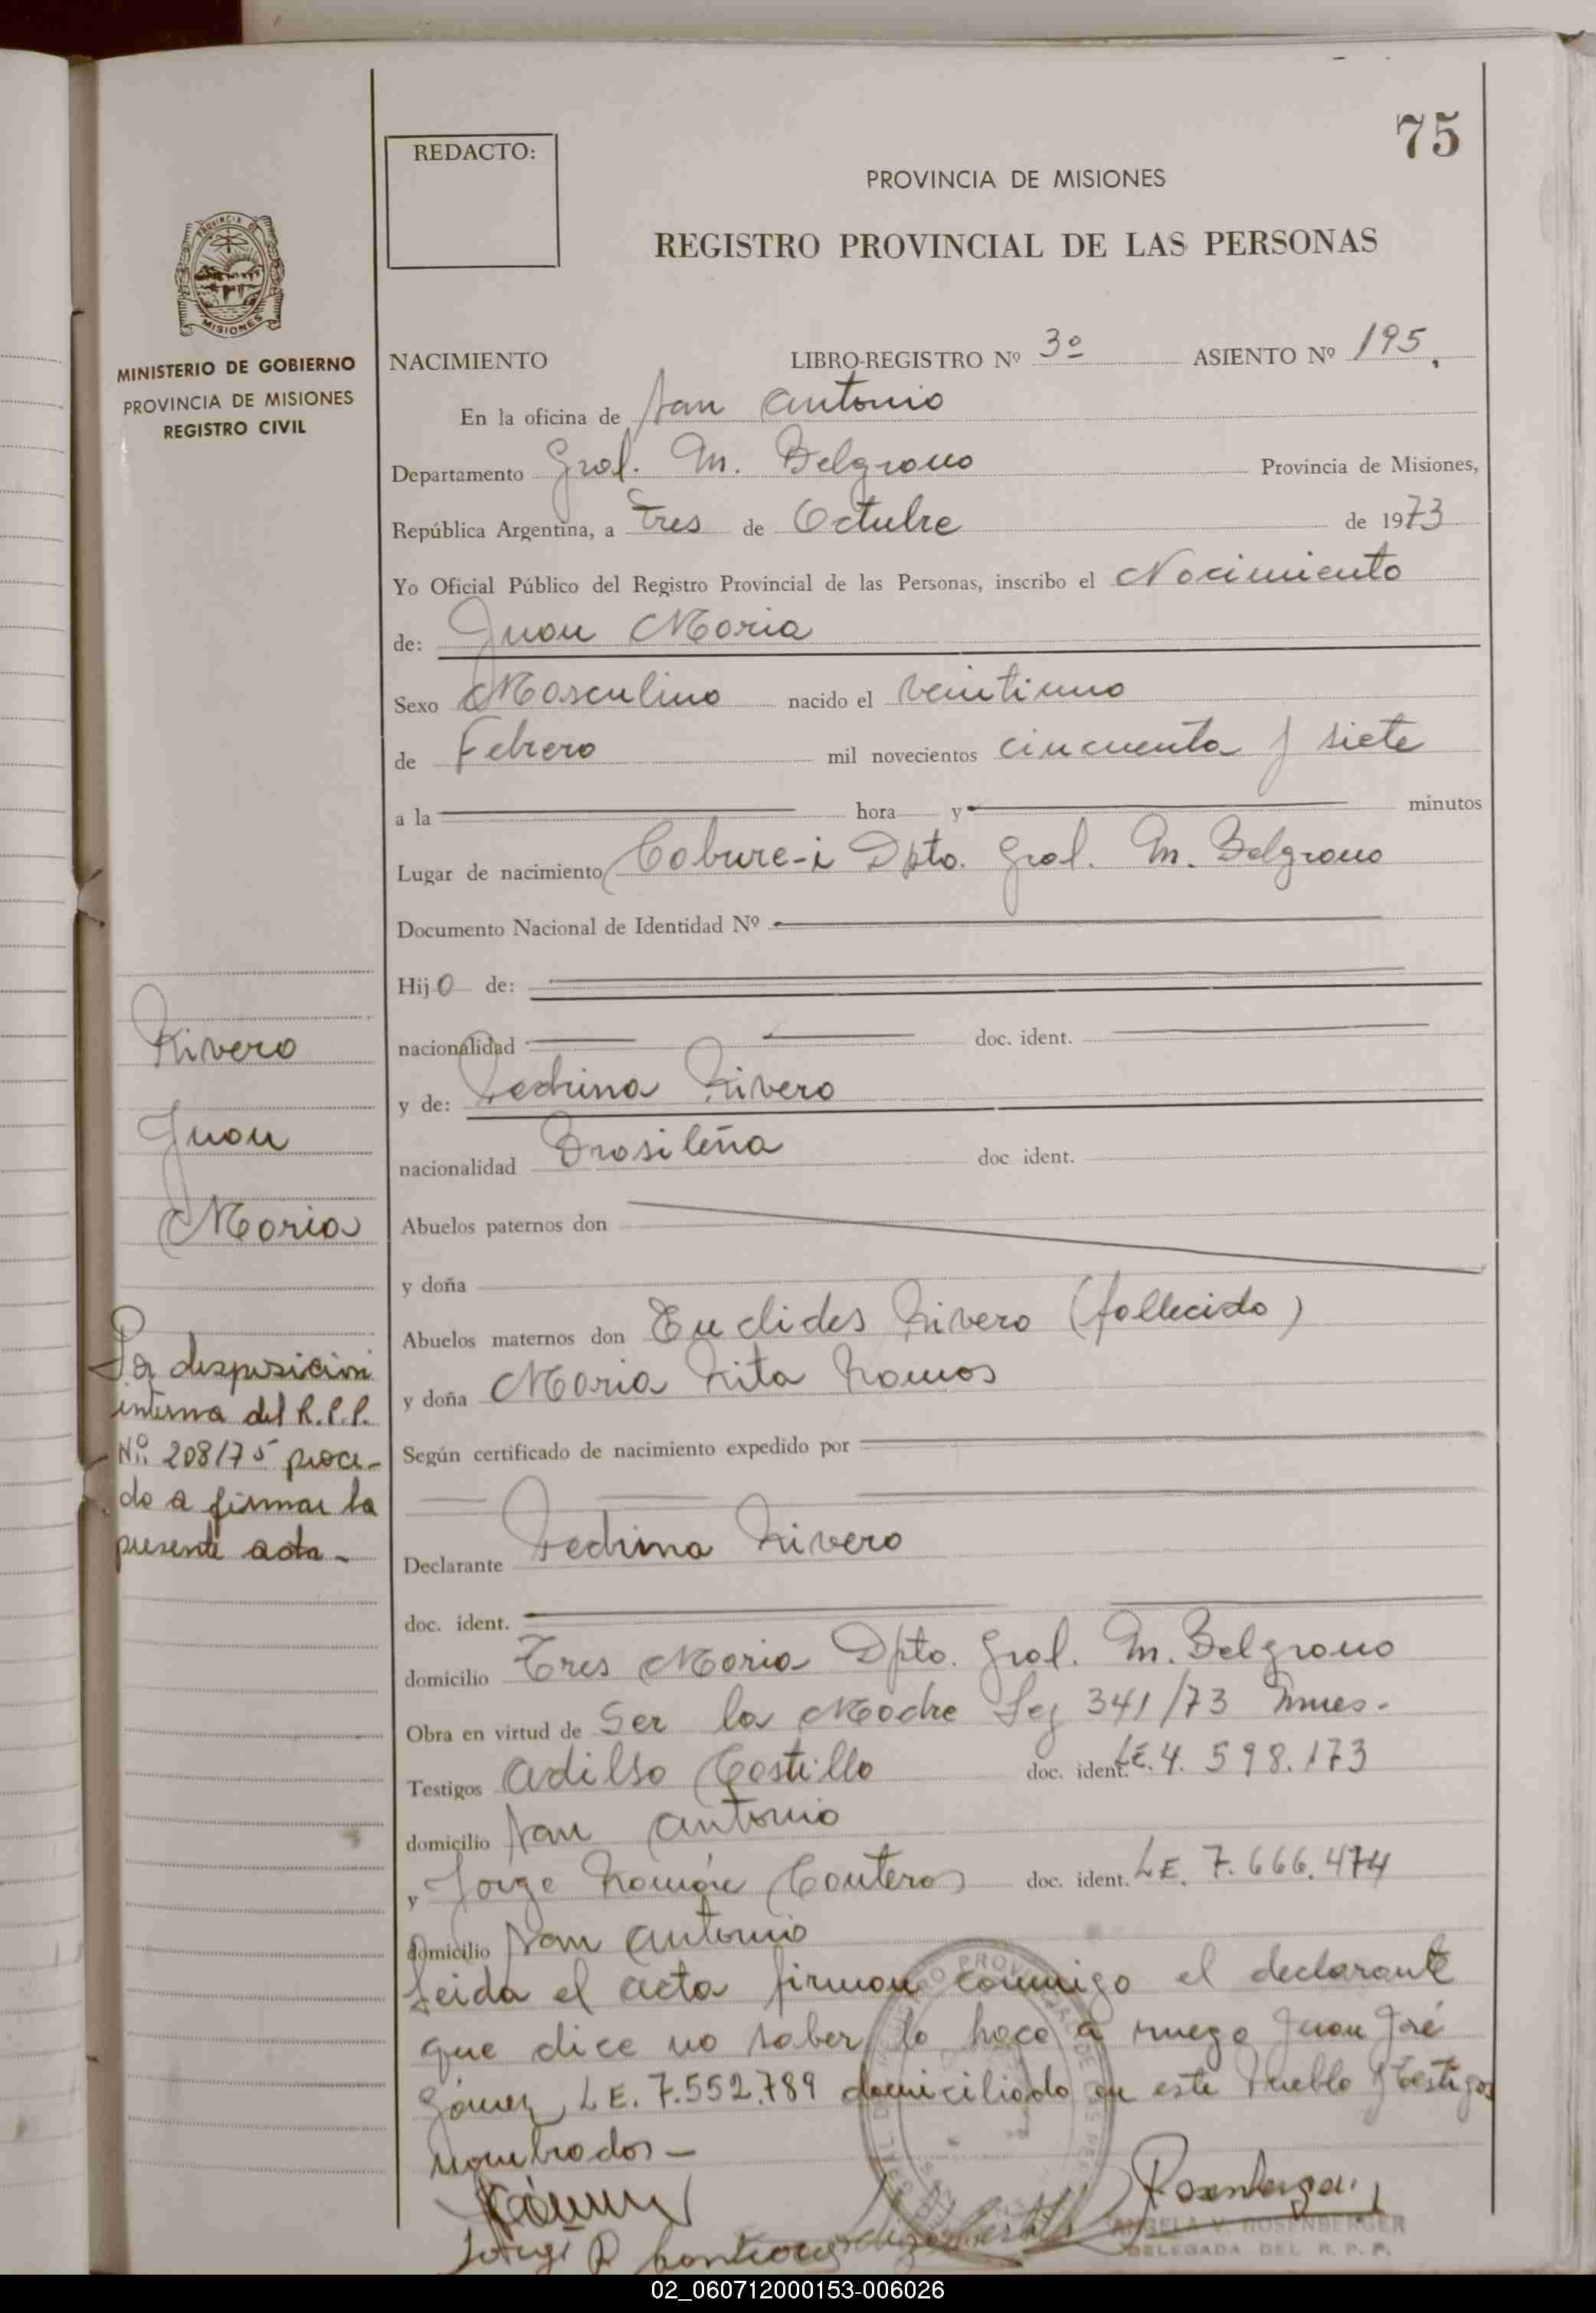 75
REDACTO:
PROVINCIA DE MISIONES
REGISTRO PROVINCIAL DE LAS PERSONAS
MISIONES
MINISTERIO DE GOBIERNO
PROVINCIA DE MISIONES
REGISTRO CIVIL
NACIMIENTO LIBRO-REGISTRO Nº 3º ASIENTO Nº 195.
En la oficina de San Antonio
Departamento Gral. M. Belgrano Provincia de Misiones,
República Argentina, a tres de Octubre de 1973
Yo Oficial Público del Registro Provincial de las Personas, inscribo el Nacimiento
de: Juan Maria
Sexo Masculino nacido el veintiuno
de Febrero mil novecientos cincuenta y siete
a la hora y minutos
Lugar de nacimiento Cabure-i Dpto. Gral. M. Belgrano
Documento Nacional de Identidad Nº
Hijo de:
nacionalidad doc. ident.
y de: Pedrina Rivero
nacionalidad Brasileña doc ident.
Abuelos paternos don
y doña
Abuelos maternos don Euclides Rivero (fallecido)
y doña Maria Rita Ramos
Según certificado de nacimiento expedido por
Declarante Pedrina Rivero
doc. ident.
domicilio Tres Maria Dpto. Gral. M. Belgrano
Obra en virtud de Ser la Madre Ley 341/73 Mnes.
Testigos Adilso Castillo doc. ident. L.E. 4.598.173
domicilio San Antonio
y Jorge Ramón Conteras doc. ident. L.E. 7.666.474
domicilio San Antonio
Leida el acta firman conmigo el declarante
que dice no saber lo hace a ruego Juan José
Gómez L.E. 7.552.789 domiciliado en este Pueblo y testigos
nombrados—
Rivero
Juan
Maria
Por disposicion
interna del R.P.P.
Nº: 208/75 proce-
do a firmar la
presente acta-
Jorge R
Rosenberger
ANGELA V. ROSENBERGER
DELEGADA DEL R. P. P.
02_060712000153-006026